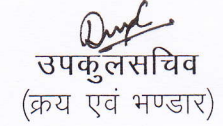 उपकुलसचिव
(क्रय एवं भण्डार)